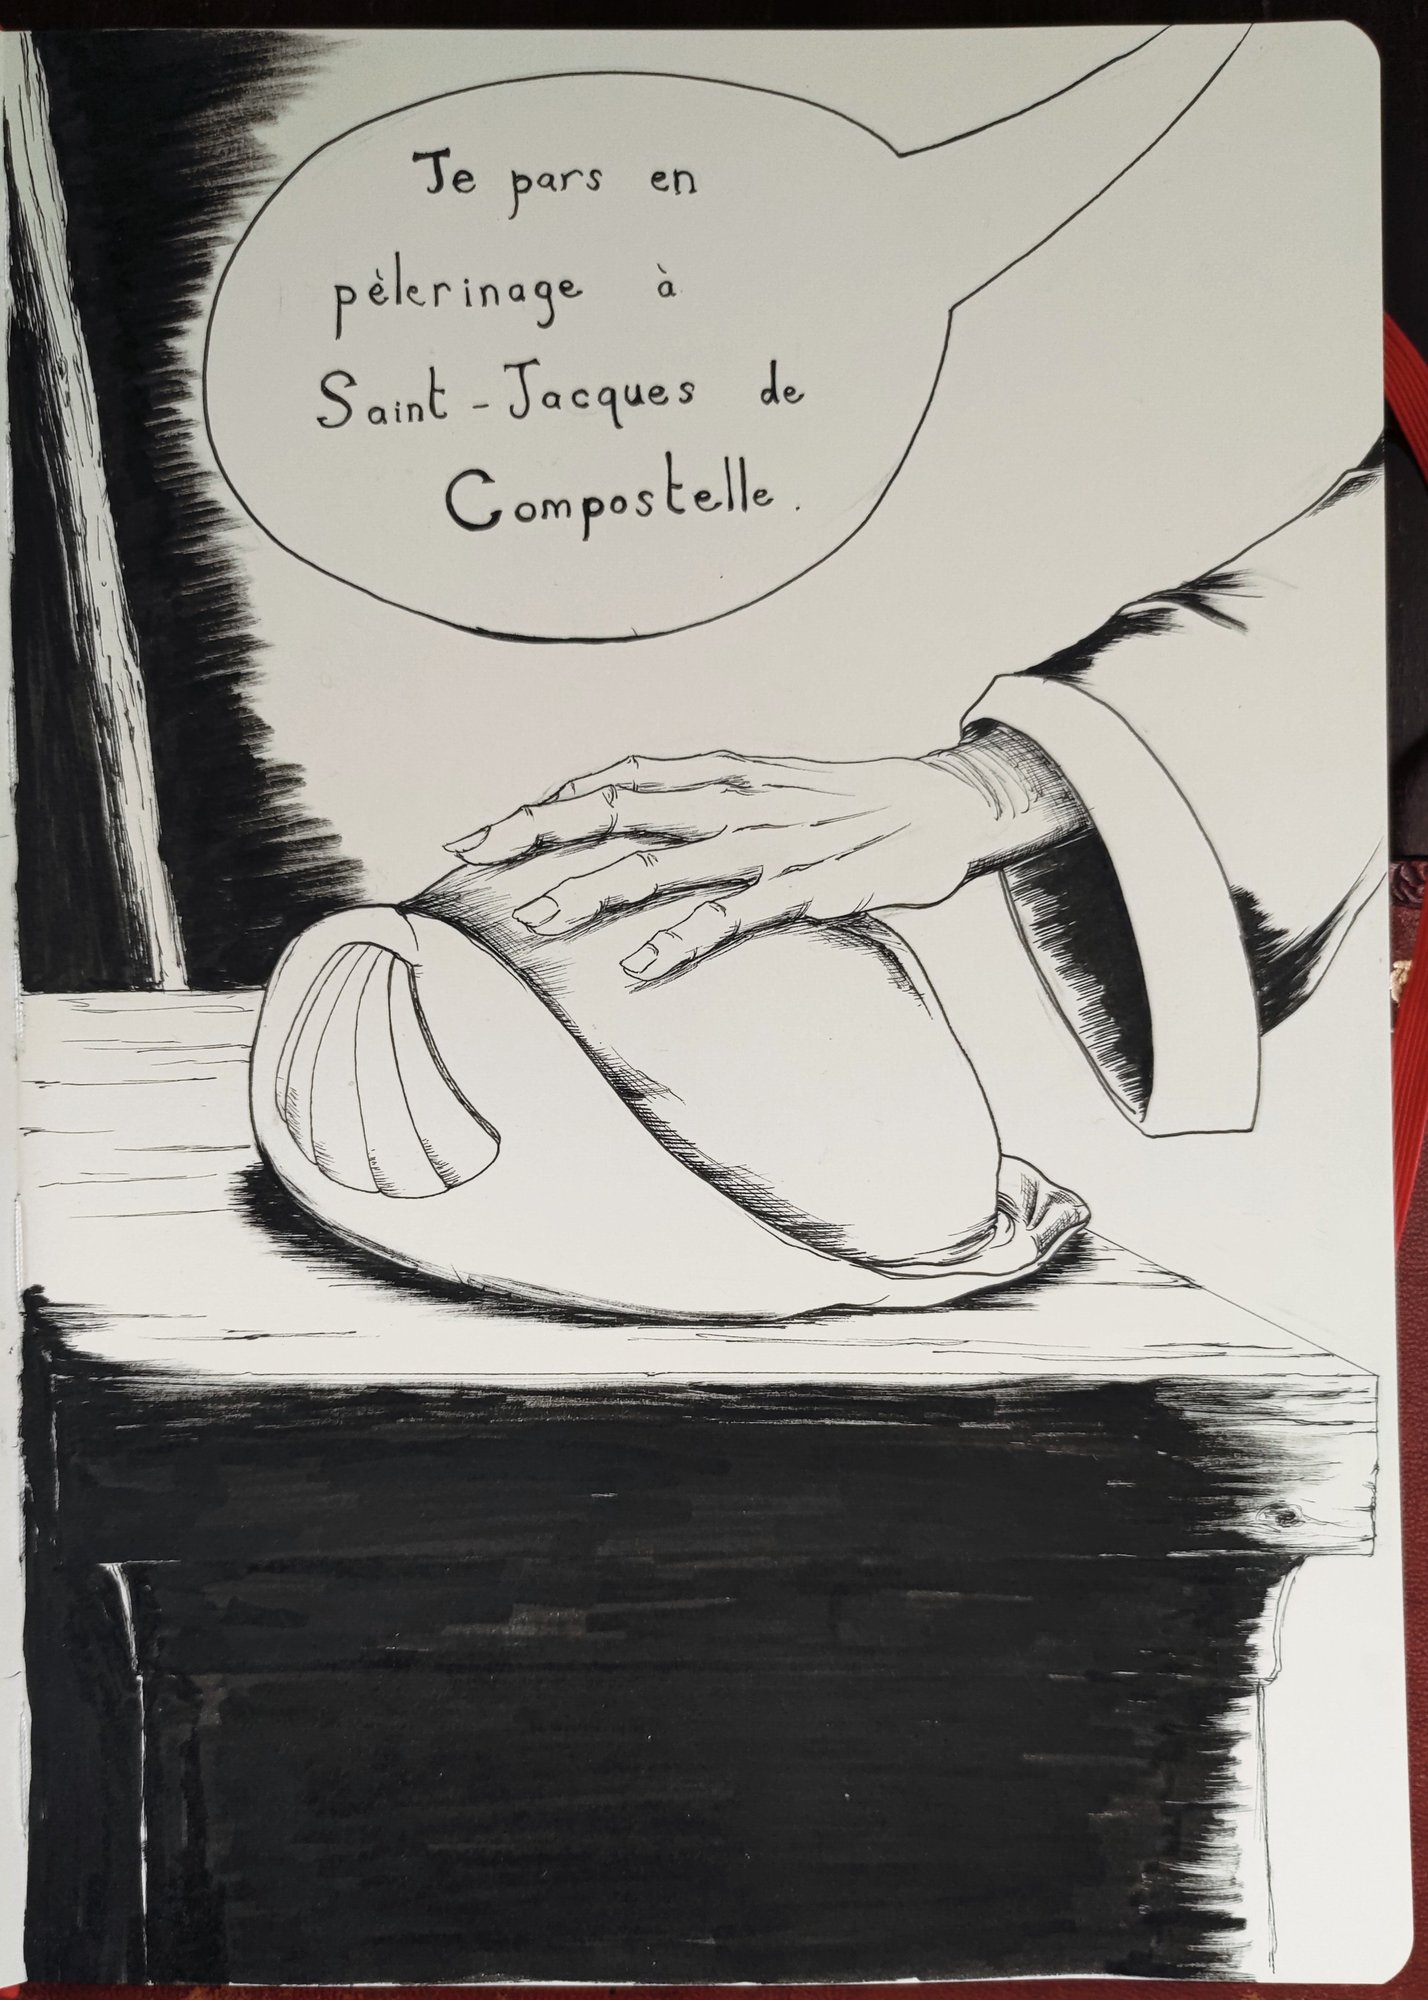 Je pars en
pèlerinage à
Saint-Jacques de
Compostelle.